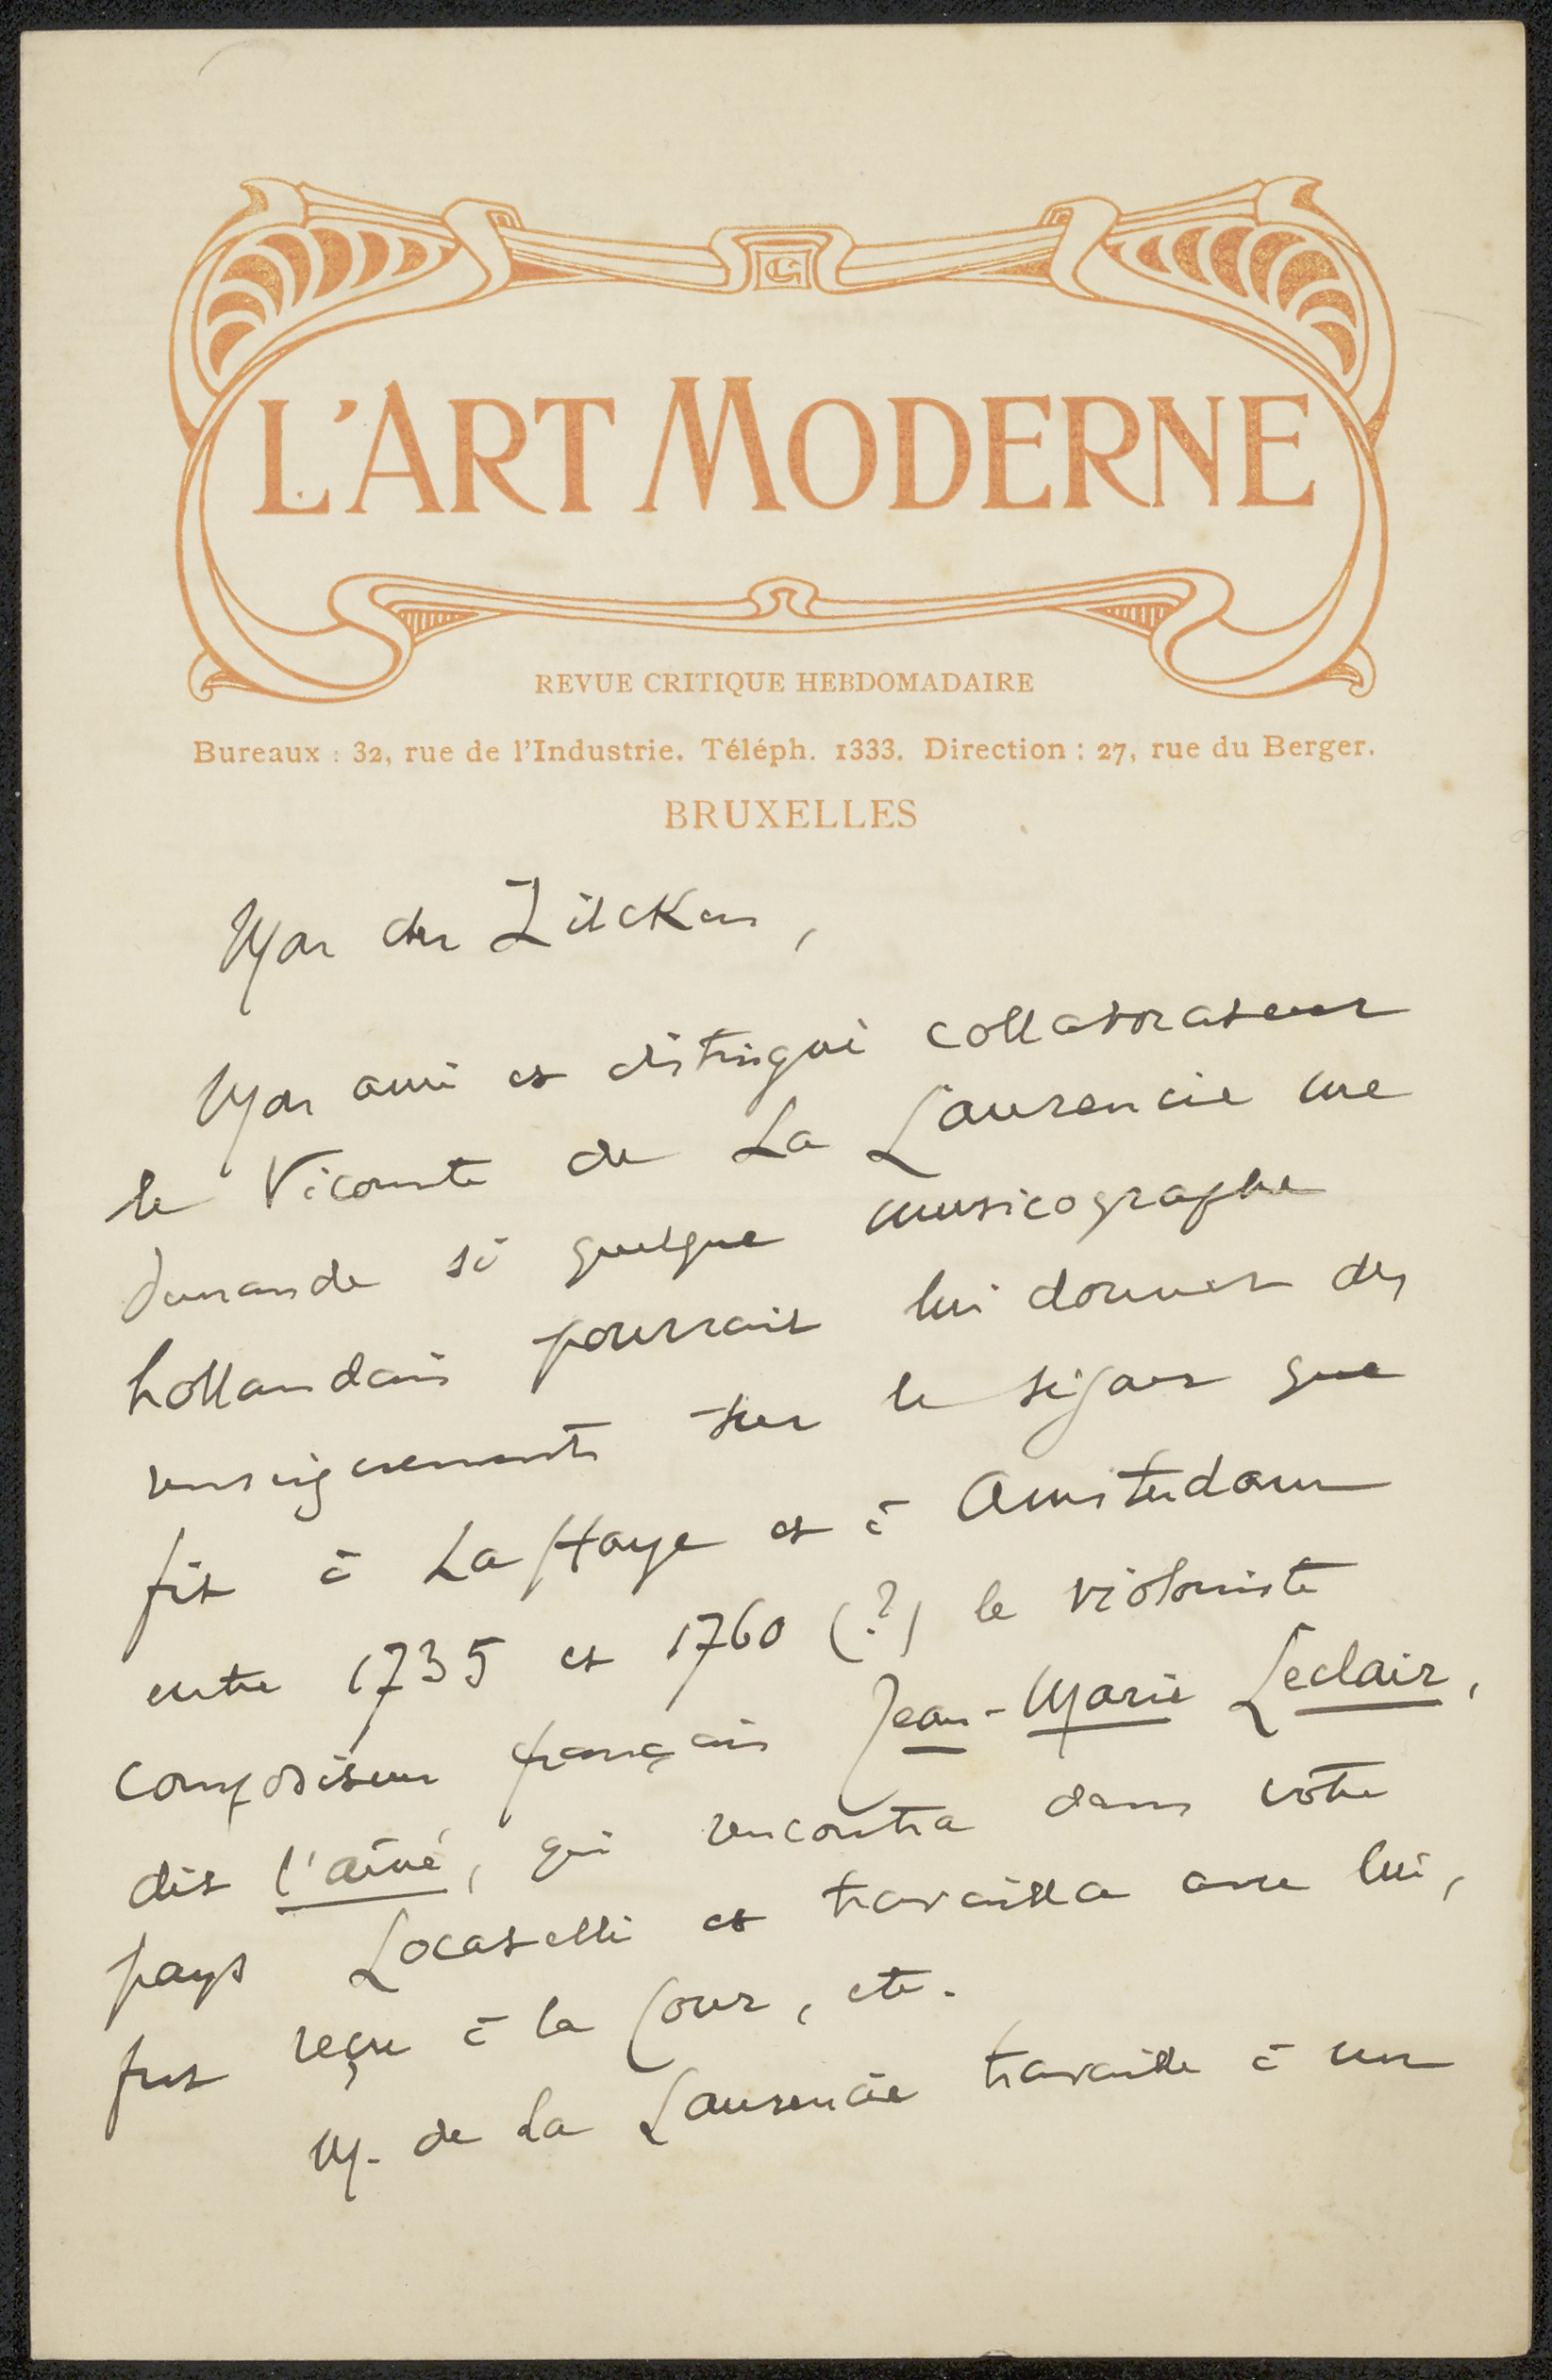 L'ART MODERNE
REVUE CRITIQUE HEBDOMADAIRE
Bureaux : 32, rue de l'Industrie. Téléph. 1333. Direction : 27, rue du Berger.
BRUXELLES
Mon cher Zilcken,
Mon ami et distingué collaborateur
le Vicomte de La Laurencie me
demande si quelque musicographe
hollandais pourrait lui donner des
renseignements sur le séjour que
fit à La Haye et à Amsterdam
entre 1735 et 1760 (?) le violoniste
compositeur français Jean-Marie Leclair,
dit l'aîné, qui rencontra dans votre
pays Locatelli et travailla avec lui,
fut reçu à la Cour, etc.
M. de la Laurencie travaille à un